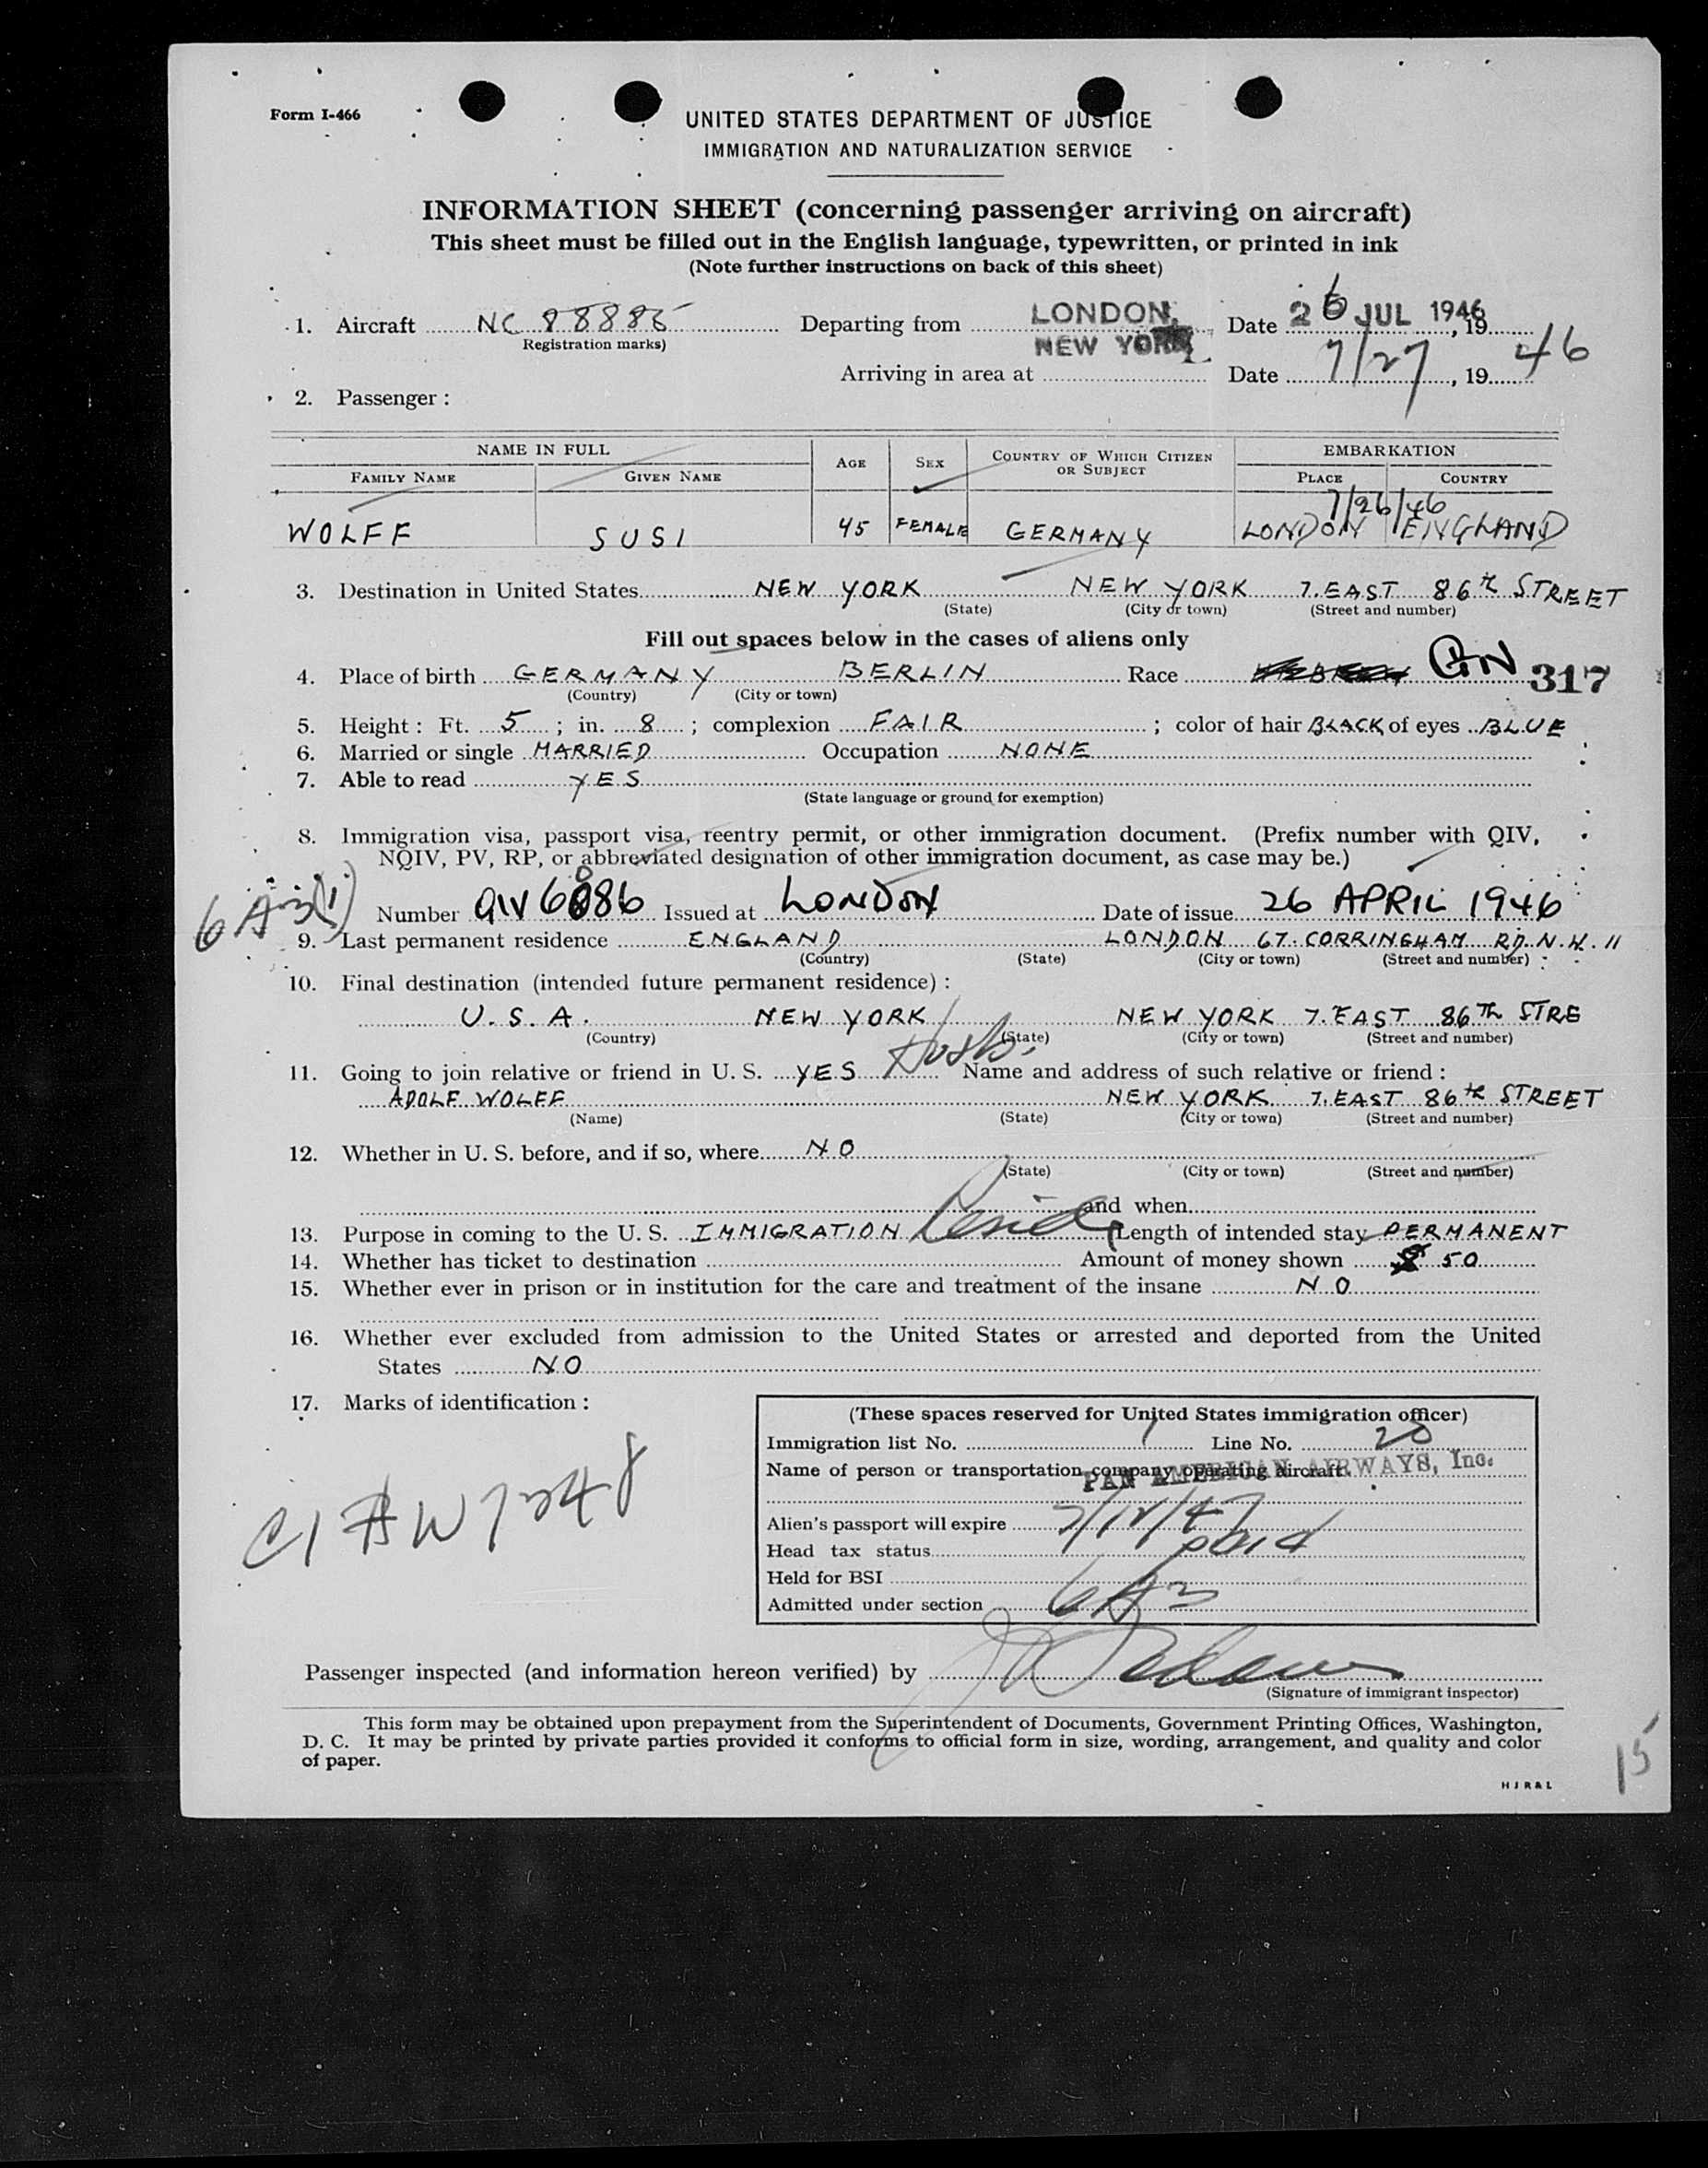 Form I-466
UNITED STATES DEPARTMENT OF JUSTICE
IMMIGRATION AND NATURALIZATION SERVICE
INFORMATION SHEET (concerning passenger arriving on aircraft)
This sheet must be filled out in the English language, typewritten, or printed in ink
(Note further instructions on back of this sheet)
1. Aircraft NC 88885 Departing from LONDON, Date 26 JUL 1946, 19
(Registration marks)
NEW YORK
Arriving in area at Date 7/27, 1946
2. Passenger:
NAME IN FULL AGE SEX COUNTRY OF WHICH CITIZEN OR SUBJECT EMBARKATION
FAMILY NAME GIVEN NAME PLACE COUNTRY
7/26/46
WOLFF SUSI 45 FEMALE GERMANY LONDON ENGLAND
3. Destination in United States NEW YORK NEW YORK 7. EAST 86th STREET
(State) (City or town) (Street and number)
Fill out spaces below in the cases of aliens only
4. Place of birth GERMANY BERLIN Race GN 317
(Country) (City or town)
5. Height: Ft. 5; in. 8; complexion FAIR; color of hair BLACK of eyes BLUE
6. Married or single MARRIED Occupation NONE
7. Able to read YES
(State language or ground for exemption)
8. Immigration visa, passport visa, reentry permit, or other immigration document. (Prefix number with QIV,
NQIV, PV, RP, or abbreviated designation of other immigration document, as case may be.)
6 A-3(1)
Number QIV 6086 Issued at LONDON Date of issue 26 APRIL 1946
9. Last permanent residence ENGLAND LONDON 67. CORRINGHAM RD. N.W. 11
(Country) (State) (City or town) (Street and number)
10. Final destination (intended future permanent residence):
U.S.A. NEW YORK NEW YORK 7. EAST 86th STRE
(Country) (State) (City or town) (Street and number)
11. Going to join relative or friend in U. S. YES Husb. Name and address of such relative or friend:
ADOLF WOLFF NEW YORK 7. EAST 86th STREET
(Name) (State) (City or town) (Street and number)
12. Whether in U. S. before, and if so, where NO
(State) (City or town) (Street and number)
and when
13. Purpose in coming to the U. S. IMMIGRATION Length of intended stay PERMANENT
14. Whether has ticket to destination Amount of money shown $ 50
15. Whether ever in prison or in institution for the care and treatment of the insane NO
16. Whether ever excluded from admission to the United States or arrested and deported from the United
States NO
17. Marks of identification:
(These spaces reserved for United States immigration officer)
Immigration list No. 1 Line No. 25
Name of person or transportation company operating aircraft PAN AMERICAN AIRWAYS, Inc.
Alien's passport will expire 7/12/47
Head tax status paid
Held for BSI
Admitted under section 6A3
Passenger inspected (and information hereon verified) by
(Signature of immigrant inspector)
This form may be obtained upon prepayment from the Superintendent of Documents, Government Printing Offices, Washington,
D. C. It may be printed by private parties provided it conforms to official form in size, wording, arrangement, and quality and color
of paper.
15
HJR&L